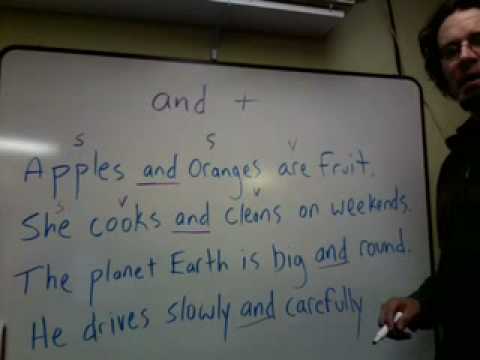 and +
s s v
Apples and Oranges are fruit.
s v v
She cooks and cleans on weekends.
The planet Earth is big and round.
He drives slowly and carefully